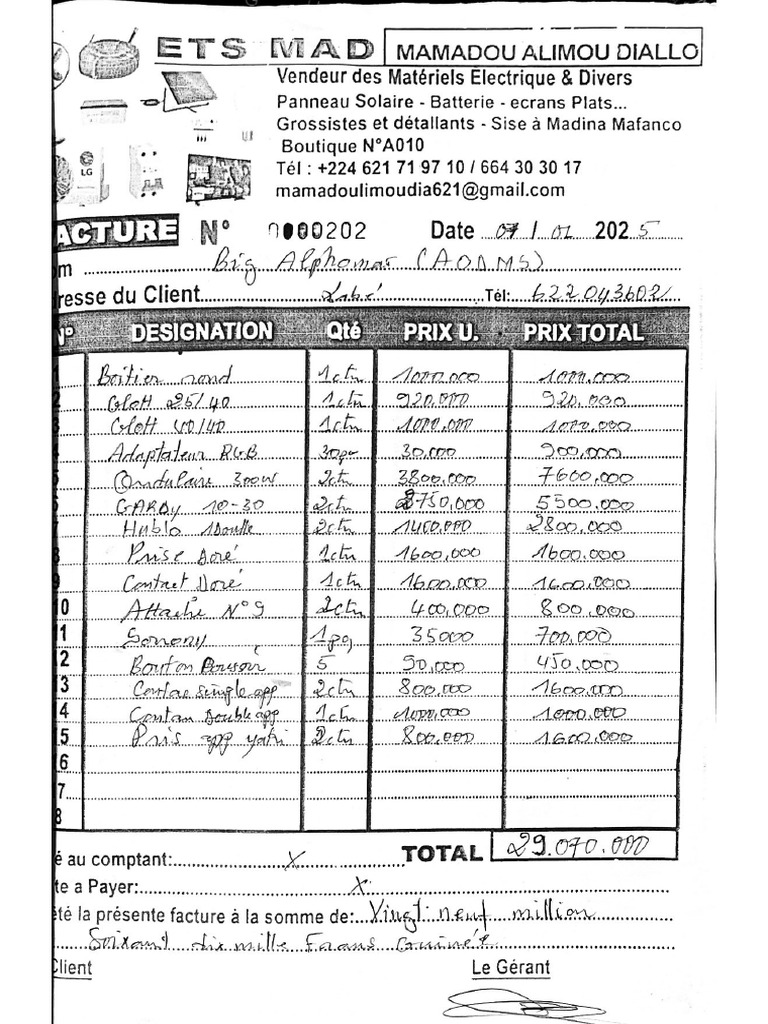 ETS MAD MAMADOU ALIMOU DIALLO
Vendeur des Matériels Electrique & Divers
Panneau Solaire - Batterie - ecrans Plats...
Grossistes et détallants - Sise à Madina Mafanco
Boutique N°A010
Tél : +224 621 71 97 10 / 664 30 30 17
mamadoulimoudia621@gmail.com
LG
ACTURE N° 0000202 Date 07 / 01 2025
om Big Alphomar (AODMS)
resse du Client Labé Tél: 622043602
N° DESIGNATION Qté PRIX U. PRIX TOTAL
1 Boitier rond 1ctn 1000.000 1000.000
2 25/40 1ctn 920.000 920.000
3 40/40 1ctn 1000.000 1000.000
Adaptateur RGB 30pc 30.000 900.000
5 Ondulaire 300W 2ctn 3800.000 7600.000
6 GARDY 10-30 2ctn 2750.000 5500.000
Hublo 1Douille 2ctn 1400.000 2800.000
8 Prise Doré 1ctn 1600.000 1600.000
9 Contact Doré 1ctn 1600.000 1600.000
10 Attache N°9 2ctn 400.000 800.000
11 1pq 35000 700.000
12 Bouton Poussoir 5 90.000 450.000
13 simple app 2ctn 800.000 1600.000
14 Double app 1ctn 1000.000 1000.000
15 Pris app 2ctn 800.000 1600.000
16
17
18
é au comptant: X TOTAL 29.070.000
te a Payer: X
êté la présente facture à la somme de: Vingt neuf million
Soixant dix mille Frans Guinée
Client Le Gérant